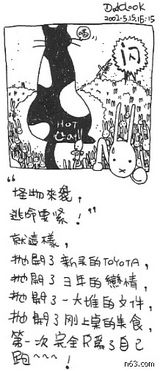 2002.5.15.15:15
闪
HOT
“
怪物來襲,
逃命要緊!”
就這樣,
抛開了新買的TOYOTA,
抛開了3年的戀情,
抛開了一大堆的文件,
抛開了剛上桌的美食,
第一次完全只爲了自己
跑~~~!
n63.com